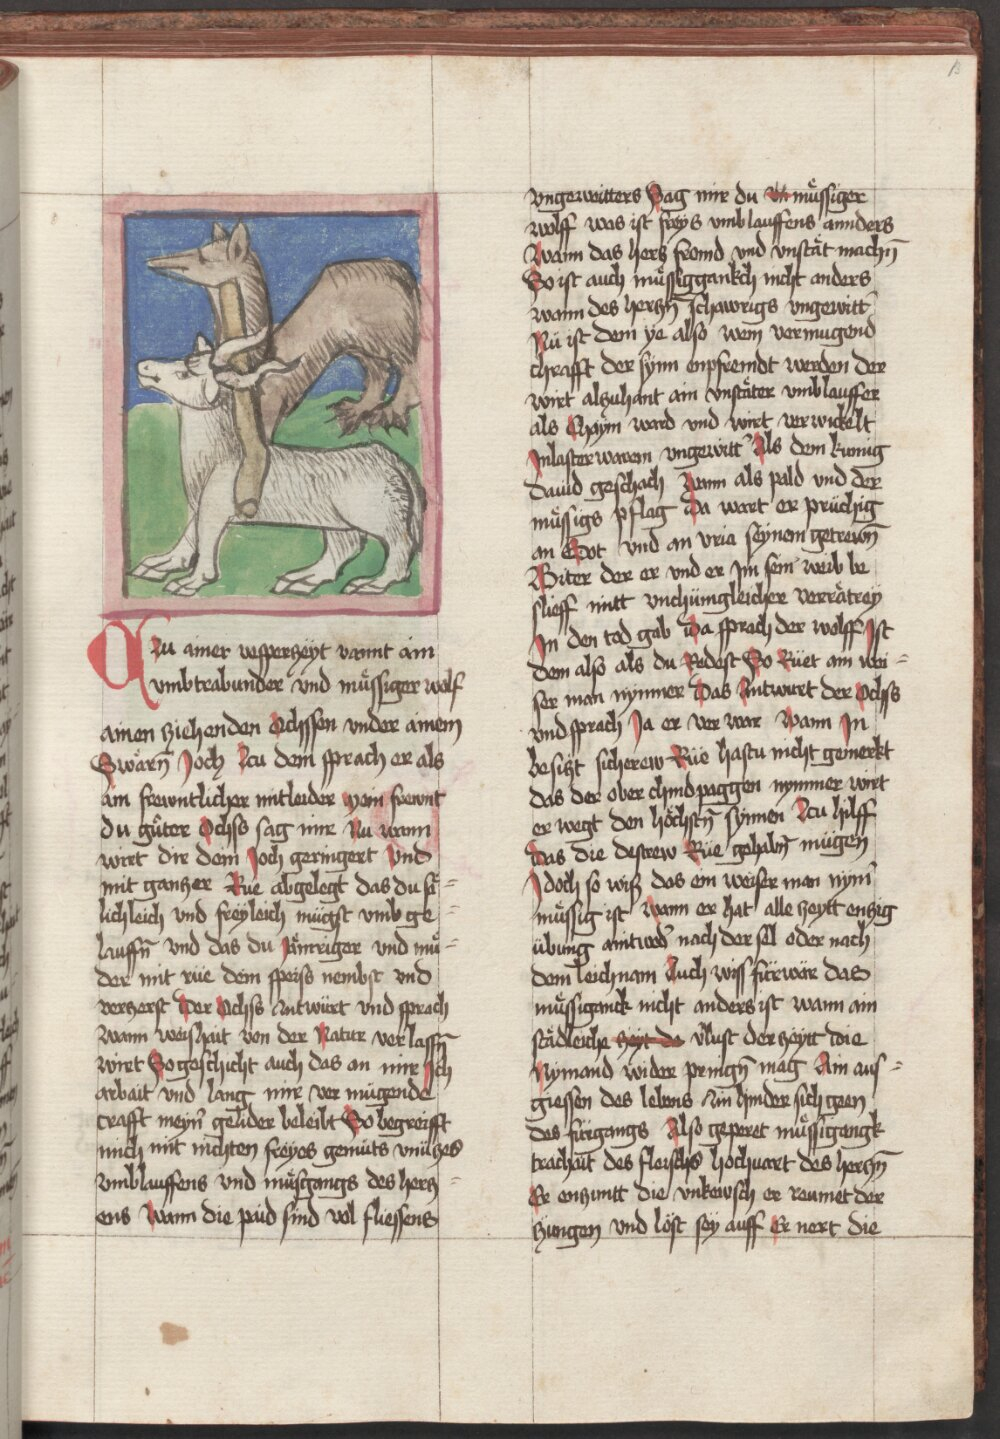 13
Zu ainer vesperzeyt vannt ain
vmbtrabunder vnd müssiger wolf
ainen ziehenden Ochssen vnder ainem
Swärn̄ Joch Zcu dem sprach er als
am frewntlicher mitleider mein frewnt
du güter Ochss sag mir Nu wann
wirt dir dein Joch geringert Vnd
mit ganczer Rue abgelegt das du fä=
lichleich vnd freyleich mügst vmb ge=
lauffn̄ vnd das du Jämriger vnd mü=
der mit rüe dem speiss nembst vnd
verzerst Der Ochss Antwürt vnd sprach
Wann weishait von der Natur verlassn̄
wirt So geschicht auch das an mir Jch
arbait vnd lang mir vermügende
crafft meyn̄ gelider beleibt So begreifft
mich mit nichten freyes gemüts vnnüczes
vmblauffens vnd müssgangs des hercz=
ens Wann die paid sind vol fliessens
vngewitters Sag mir du müssiger
wolff was ist freys vmblauffens annders
Wann das hercz fremd vnd vnstät machn̄
So ist auch müssiggankch nicht anders
wann des herczn̄ schawrigs vngewitt̄
Nü ist dem ye also wem vermugend
chrafft der synn enpfremdt werden der
wirt alczuhant ain vnstäter vmblauffer
als Chaym ward vnd wirt verwickelt
Jn laster warem vngewitt̄ Als dem kunig
dauid geschach Wann als pald vnd der
müssigs pflag Da wart er prüchig
an Got vnd an vria seynem getrewn̄
Riter der er vnd er Jm sein weib be
slieff mitt vnchümgleicher verrätrey
Jn den tod gab Da sprach der wolff Jst
dem also als du Redest So Rüet am wei=
ser man nymmer Das Antwurt der Ochss
vnd sprach Ja er ver war Wann Jn
besiczt sicherew Rüe hastu nicht gemerkt
das der ober chinpaggen nymmer wirt
er wegt den höchstn̄ synnen Zcu hilff
Das die destrew Rüe gehabn̄ mügen
Jdoch so wiss das ein weiser man nym̄
müssig ist Wann er hat alle zeytt enczig
übung aintwed̄ nach der sel oder nach
dem leichnam Auch wiss fürwär das
müssiganck nicht anders ist wann ain
städleiche zeyt de v̄lust der zeytt die
Nymand wider pringn̄ mag Ain auf=
giessen des lebens Ain hinder sich geen
des fürgangs Also geperet müssigangk
trachait des fleischs hochuart des herczn̄
Er enczuntt die vnkewsch er raumet der
zungen vnd löst sey auff Er nert die